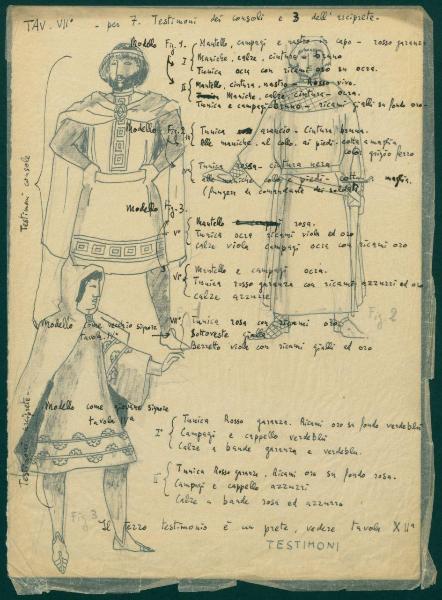 TAV. VIIª - per 7. Testimoni dei consoli e 3 dell'arciprete.
Modello Fig. 1.
I Mantello, campagi e nastro in capo - rosso garanza
Maniche, calze, cintura - bruno
Tunica ocra con ricami oro su ocra.
II Mantello, cintura, nastro - Rosso vivo.
Maniche, calze, cintura - ocra.
Tunica e campagi bruno - ricami gialli su fondo oro
Modello Fig. 2
Tunica arancio - Cintura bruna.
Alle maniche, al collo, ai piedi, cotta a maglia
color grigio ferro
Tunica rossa - cintura nera
alle maniche collo e piedi - cotta maglia.
(fungere da comandante dei soldati)
Modello Fig. 3.
Vº Mantello rosa.
Tunica ocra ricami viola ed oro
Calze viola campagi ocra con ricami oro
VIº Mantello e campagi ocra.
Tunica rosso garanza con ricami azzurri ed oro
Calze azzurre
Modello come vecchio signore
tavola IVª
VIIº Tunica rosa con ricami oro
Sottoveste gialla
Berretto viola con ricami gialli ed oro
Modello come giovane signore
tavola
Iº Tunica Rosso garanza. Ricami oro su fondo verdeblù
Campagi e cappello verdeblù
Calze a bande garanza e verdeblu.
II Tunica Rosso garanza. Ricami oro su fondo rosa.
Campagi e cappello azzurri
Calze a bande rosa ed azzurro
Il terzo testimonio è un prete, vedere tavola XIIª
TESTIMONI
Testimoni console
Testimoni arciprete
Fig. 2
Fig. 3